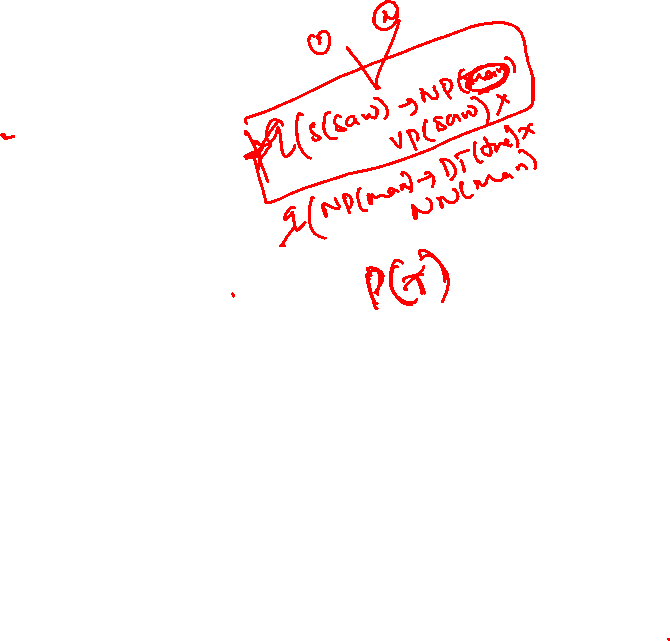 ① ②
q(S(saw) → NP(man)
VP(saw) ×
q(NP(man) → DT(the) ×
NN(man)
P(T)